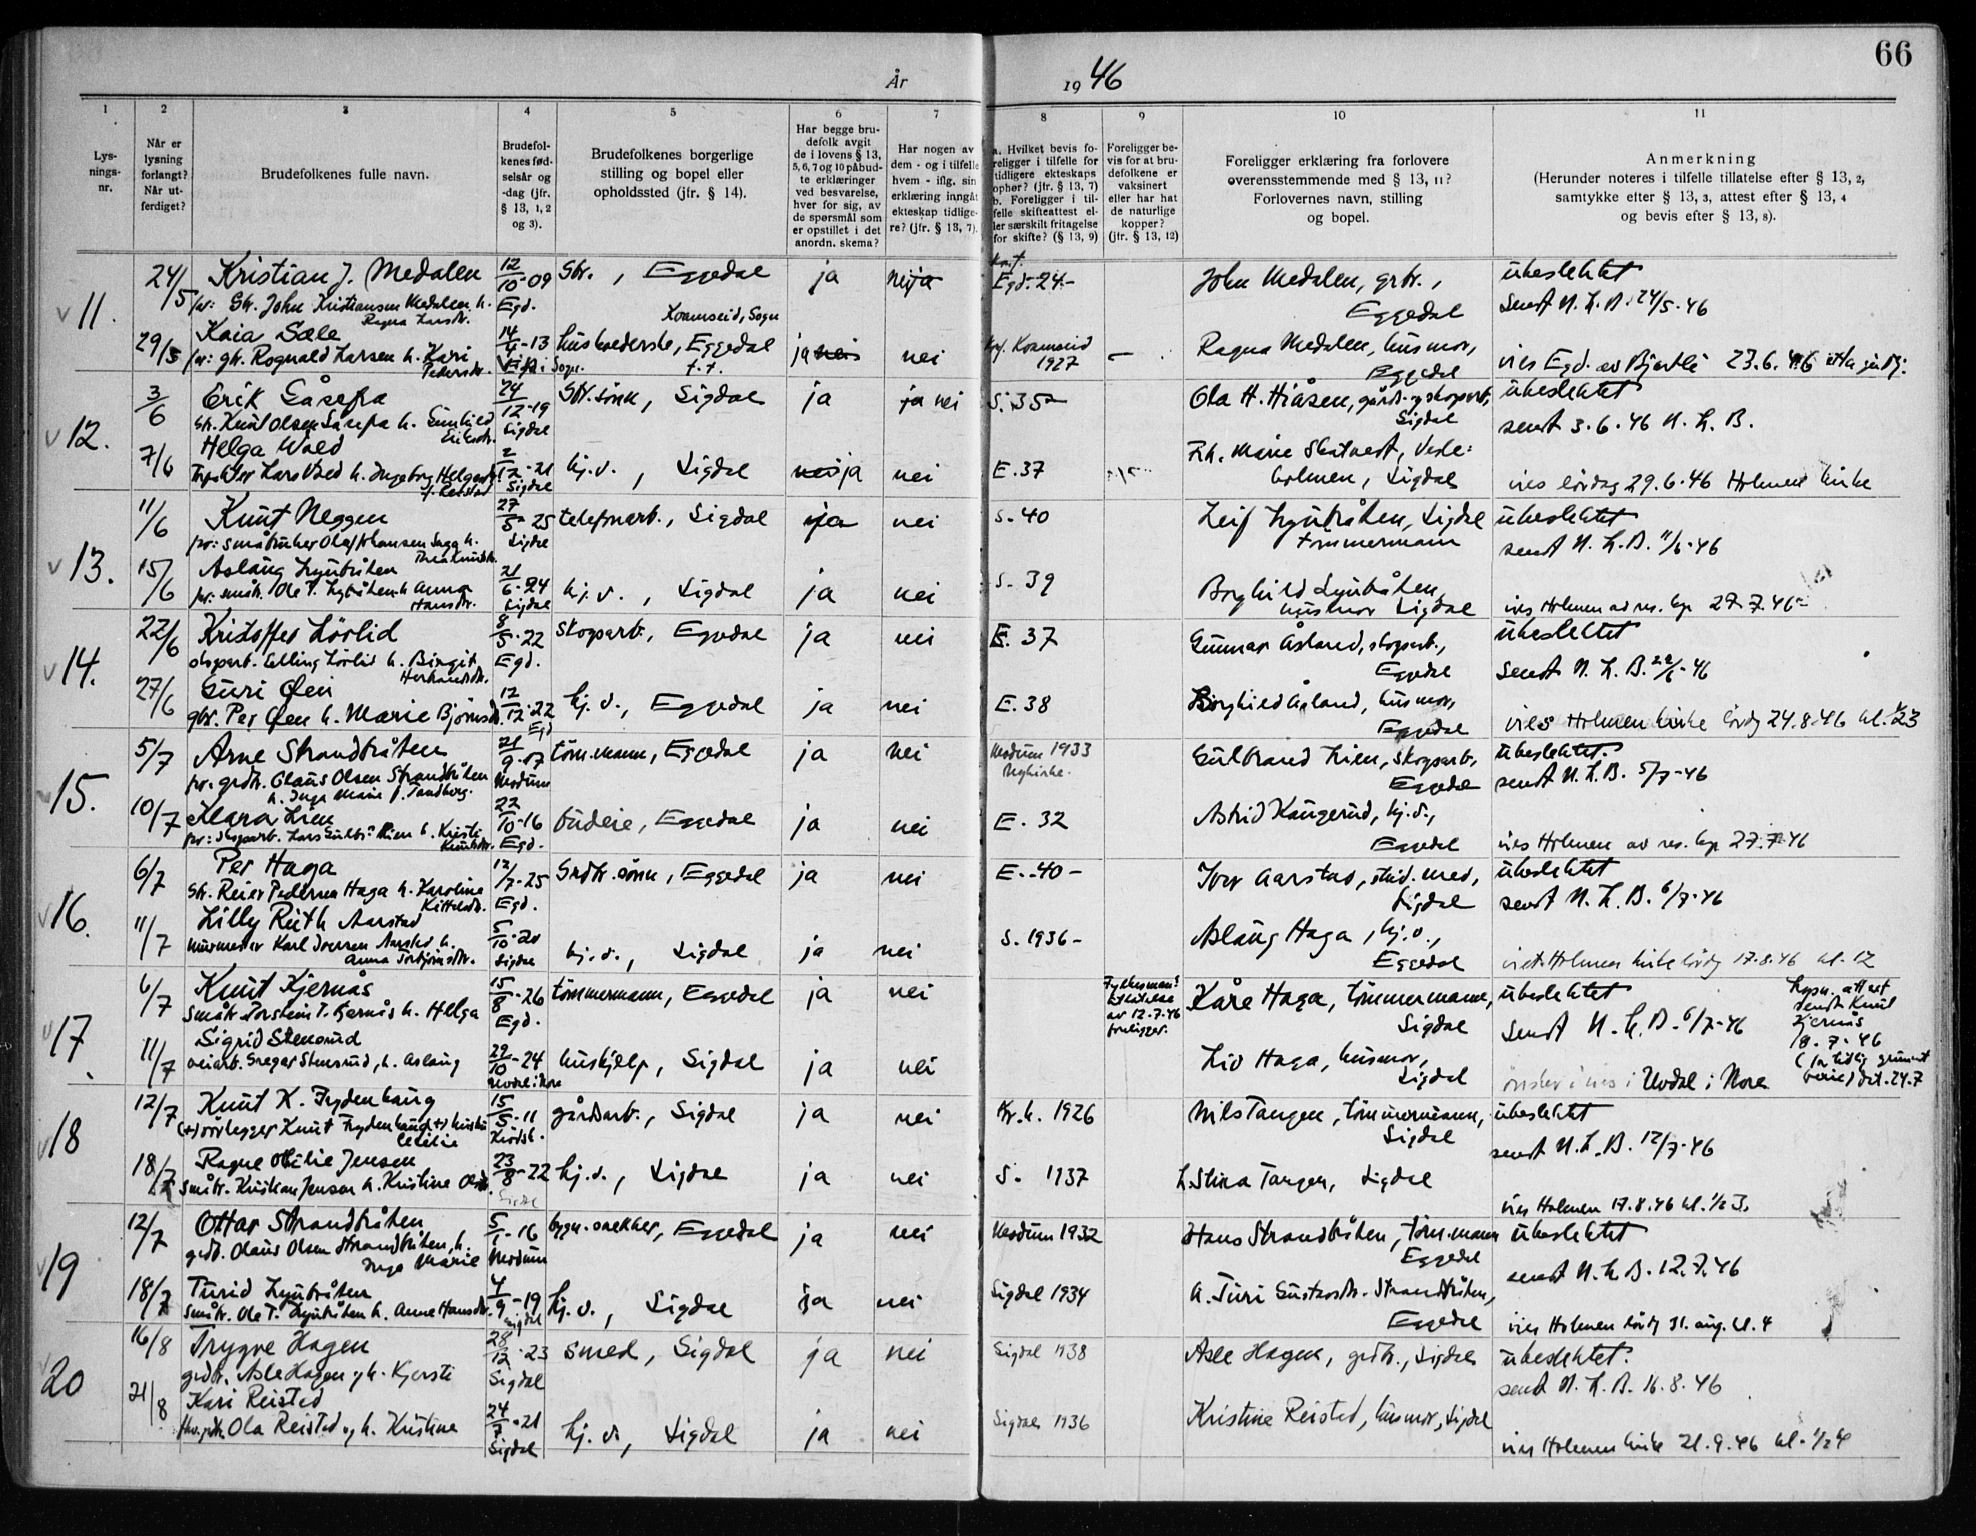 66
År 1946
1 2 3 4 5 6 7 8 9 10 11
Lysningsnr.
Når er lysning forlangt? Når utferdiget?
Brudefolkenes fulle navn.
Brudefolkenes fødselsår og -dag (jfr. § 13, 1, 2 og 3).
Brudefolkenes borgerlige stilling og bopel eller opholdssted (jfr. § 14).
Har begge brudefolk avgit de i lovens § 13, 5, 6, 7 og 10 påbudte erklæringer ved besvarelse, hver for sig, av de spørsmål som er opstillet i det anordn. skema?
Har nogen av dem - og i tilfelle hvem - iflg. sin erklæring inngått ekteskap tidligere? (jfr. § 13, 7).
a. Hvilket bevis foreligger i tilfelle for tidligere ekteskaps ophør? (jfr. § 13, 7)
b. Foreligger i tilfelle skifteattest eller særskilt fritagelse for skifte? (§ 13, 9)
Foreligger bevis for at brudefolkene er vaksinert eller har hat de naturlige kopper? (jfr. § 13, 12)
Foreligger erklæring fra forlovere overensstemmende med § 13, 11? Forlovernes navn, stilling og bopel.
Anmerkning
(Herunder noteres i tilfelle tillatelse efter § 13, 2, samtykke efter § 13, 3, attest efter § 13, 4 og bevis efter § 13, 8).
11. 24/5 Kristian J. Medalen 12/10-09 Gbr., Eggedal ja nei ja Egd. 24- John Medalen, grbr., ubeslektet
far: Gbr. John Kristiansen Medalen h. Ragna Larsdr. Egd. Eggedal Sendt N. L. B. 24/5-46
29/5 Kaia Sæle 14/4-13 husholderske, Eggedal ja nei nei 1927 — Ragna Medalen, husmor, Eggedal
far: gbr. Rognald Larsen h. Kari Pedersdr. f.t. vies Egd. 23.6.46
12. 3/6 Erik Gåsefra 24/12-19 Gbr.sønn, Sigdal ja ja nei S. 35- Ola H. Hiåsen, Sigdal ubeslektet
Gbr. Knut Olsen Gåsefra h. Gunhild Eriksdr. Sigdal sendt 3.6.46 N. L. B.
7/6 Helga Wold 2/12-21 hj.v., Sigdal nei ja nei E. 37 Sigdal
Lars Wold h. Ingeborg Helgesdr. Sigdal vies lördag 29.6.46 Holmen kirke
13. 11/6 Knut Neggen 27/5-25 telefonarb., Sigdal ja nei S. 40 Leif Lyubråten, Sigdal ubeslektet
far: småbruker Olaf Johansen h. Thea Knutsdr. Sigdal tömmermann sendt N. L. B. 11/6-46
15/6 Aslaug Lyubråten 21/6-24 hj.v., Sigdal ja nei S. 39 Borghild Lyubråten, husmor Sigdal
far: småbr. Ole T. Lyubråten h. Anna Hansdr. Sigdal vies Holmen av res. kap 27.7.46
14. 22/6 Kristoffer Lörlid 8/5-22 skogsarb., Eggedal ja nei E. 37 Gunnar Åsland, skogsarb., Eggedal ubeslektet
skogsarb. Elling Lörlid h. Birgit Egd. Sendt N. L. B. 22/6-46
27/6 Guri Øen 12/12-22 hj.v., Eggedal ja nei E. 38 Borghild Åsland, husmor, Eggedal
gbr. Per Øen h. Marie Björnsdr. Egd vies Holmen kirke lördg 24.8.46 kl. ½3
15. 5/7 Arne Strandbråten 21/9-07 töm.mann, Eggedal ja nei Modum 1933 Nykirke. Gulbrand Lien, skogsarb., Eggedal ubeslektet.
far. grdbr. Olaus Olsen Strandbråten h. Inga Marie f. Tandberg. Modum sendt N. L. B. 5/7-46
10/7 Klara Lien 22/10-16 budeie, Eggedal ja nei E. 32 Astrid Kaugerud, hj.v., Eggedal
far: skogsarb. Lars Gulbr. Lien h. Kristi Knutsdr. Egd. vies Holmen av res. kap 27.7.46
16. 6/7 Per Haga 13/7-25 Grdbr.sönn, Eggedal ja nei E. 40- Iver Aarstad, stud. med, Sigdal ubeslektet
Gbr. Reier Pedersen Haga h. Karoline Kittelsdr. Egd. sendt N. L. B. 6/7-46
11/7 Lilly Ruth Aarstad 5/10-20 hj.v., Sigdal ja nei S. 1936- Aslaug Haga, hj.v., Eggedal
murmester Karl Iversen Aarstad h. Anna Torbjörnsdr. Sigdal viet Holmen kirke lördg 17.8.46 kl. 12
17. 6/7 Knut Kjernås 15/8-26 tömmermann, Eggedal ja nei Kåre Haga, tömmermann, Sigdal ubeslektet
Småbr. Torstein T. Kjernås h. Helga Egd. av 12.7.46 foreligger. Sendt N. L. B. 6/7-46
Lysn. attest sendt Knut Kjernås 18.7.46
11/7 Sigrid Stensrud 29/10-24 hushjelp, Sigdal ja nei Liv Haga, husmor, Sigdal
veiarb. Gregar Stensrud, h. Aslaug Uvdal i Nore önsker å vies i Uvdal i Nore
18 12/7 Knut K. Frydenhaug 15/5-11 gårdsarb., Sigdal ja nei Kr.h. 1926 Nils Tangen, tömmermann, Sigdal ubeslektet
(+) Knut Frydenhaug (+) Cecilie Krödsh. sendt N. L. B. 12/7-46
18/7 Ragne Otilie Jensen 23/8-22 hj.v., Sigdal ja nei S. 1937 Stina Tangen, Sigdal
småbr. Kristian Jensen h. Kristine Olsdr. vies Holmen 17.8.46 kl. ½ 3.
19 12/7 Ottar Strandbråten 5/1-16 bygn.snekker, Eggedal ja nei Modum 1932 Hans Strandbråten, töm.mann Eggedal ubeslektet
grdb. Olaus Olsen Strandbråten, h. Inga Marie Modum sendt N. L. B. 12.7.46
18/7 Turid Lyubråten 4/9-19 hj.v., Sigdal ja nei Sigdal 1934 A. Turi Gustavsdr. Strandbråten, Eggedal
småbr. Ole T. Lyubråten h. Anne Hansdr. Sigdal vies Holmen lördg 31. aug. kl. 4
20 16/8 Trygve Hagen 28/12-23 smed, Sigdal ja nei Sigdal 1938 Asle Hagen, grdbr., Sigdal ubeslektet.
grdbr. Asle Hagen og h. Kjersti Sigdal sendt N. L. B. 16.8.46
21/8 Kari Reistad 24/7-21 hj.v., Sigdal ja nei Sigdal 1936 Kristine Reistad, husmor, Sigdal
Ola Reistad og h. Kristine Sigdal vies Holmen kirke 21.9.46 kl. ½ 4